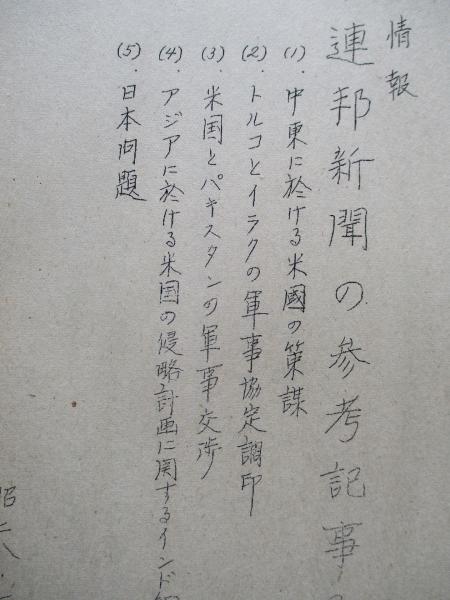 情報
連邦新聞の参考記事
(1). 中東に於ける米國の策謀
(2). トルコとイラクの軍事協定調印
(3). 米国とパキスタンの軍事交渉
(4). アジアに於ける米国の侵略計画に関するインド
(5). 日本問題
昭二八